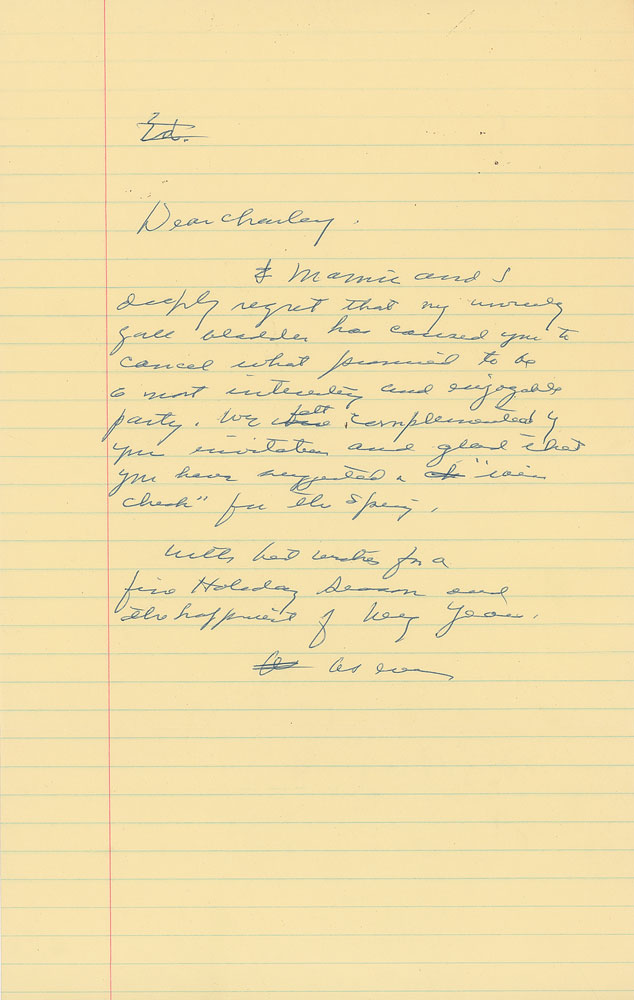 Ed.
Dear Charley,
I Mamie and I
deeply regret that my unruly
gall bladder has caused you to
cancel what promised to be
a most interesting and enjoyable
party. We felt complemented by
your invitation and glad that
you have suggested a "rain
check" for the Spring.
With best wishes for a
fine Holiday Season and
the happiest of New Years.
As ever